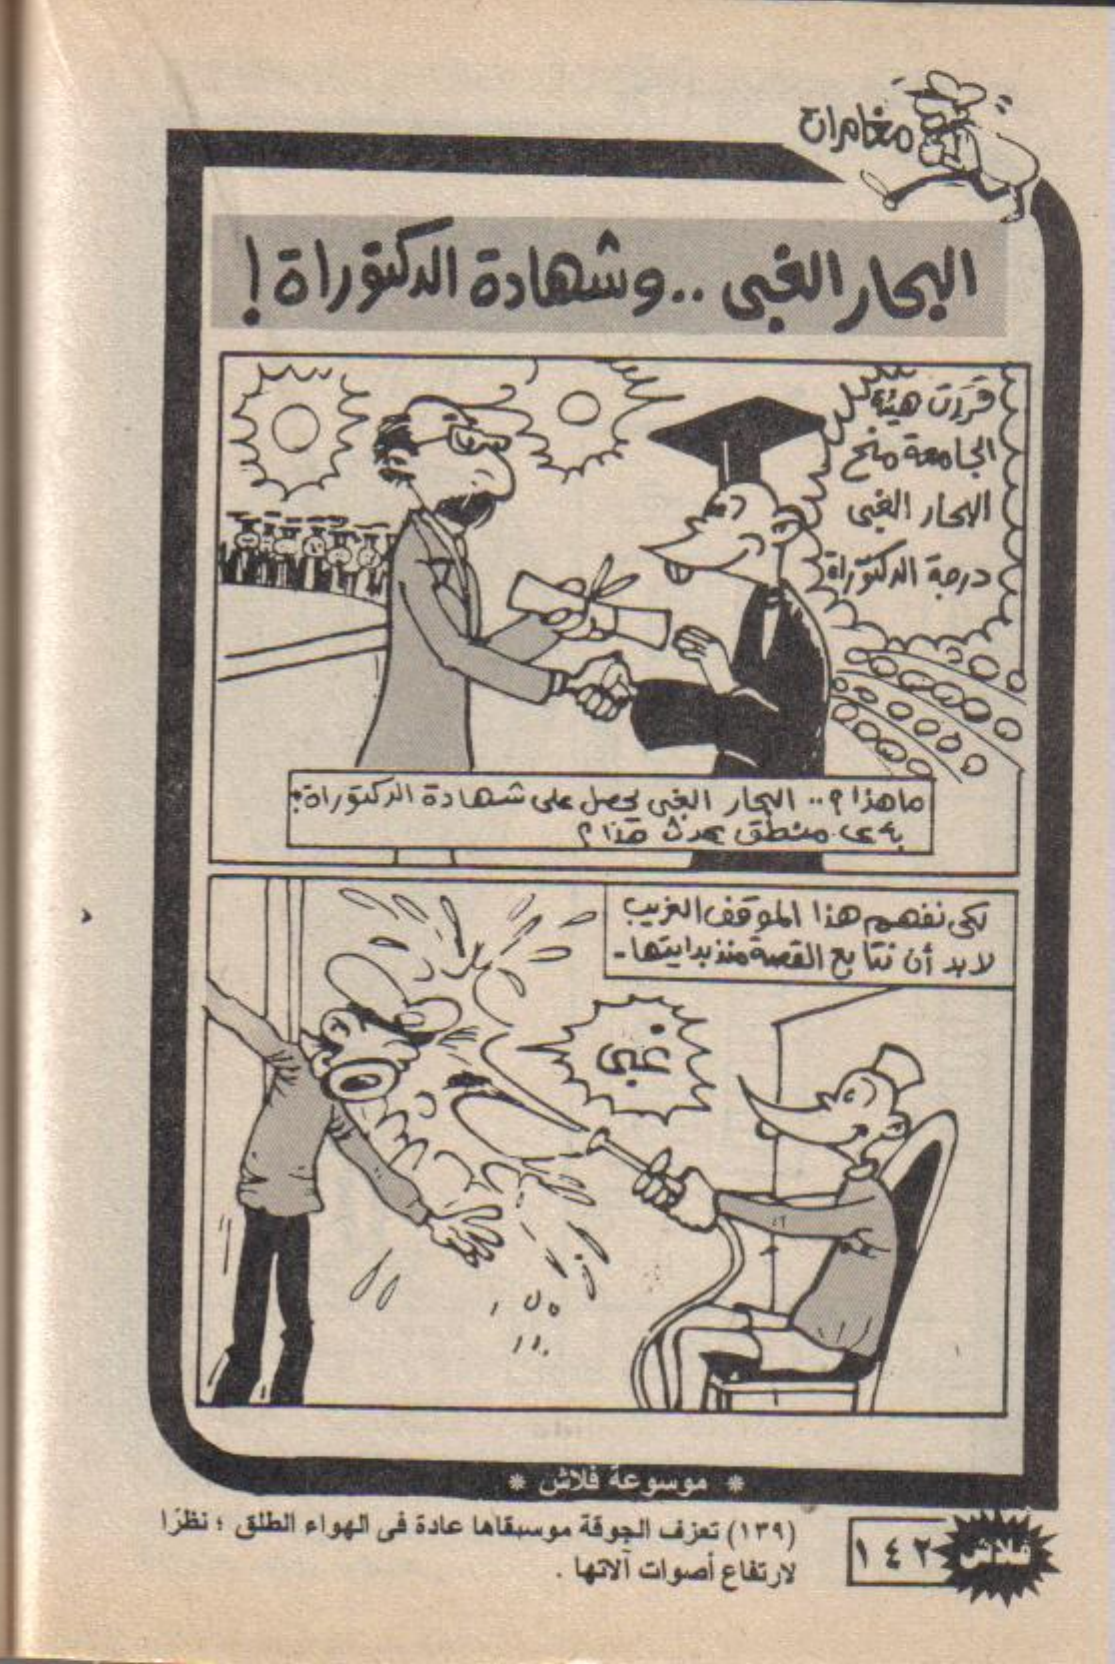 مغامرات
البحار الغبى .. وشهادة الدكتوراة !
قررت هيئة
الجامعة منح
البحار الغبى
درجة الدكتوراة
ما هذا ؟ .. البحار الغبى يحصل على شهادة الدكتوراة ؟
بأى منطق يحدث هذا ؟
لكى نفهم هذا الموقف الغريب
لابد أن نتابع القصة منذ بدايتها .
غبى
* موسوعة فلاش *
(١٣٩) تعزف الجوقة موسيقاها عادة فى الهواء الطلق ؛ نظرًا
لارتفاع أصوات آلاتها .
فلاش ١٤٢